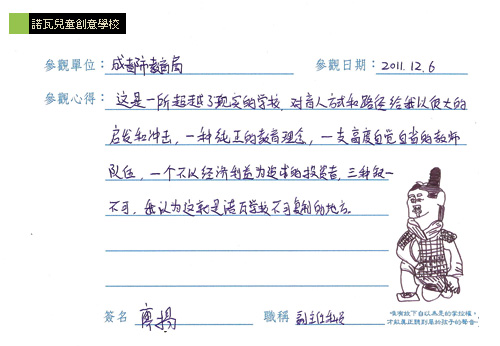 諾瓦兒童創意學校
參觀單位： 成都市教育局 參觀日期： 2011.12.6
參觀心得： 这是一所超越了现实的学校，对育人方式和路径给我以很大的
启发和冲击，一种纯正的教育理念，一支高度自觉自省的教师
队伍，一个不以经济利益为追求的投资者，三种缺一
不可，我认为这就是诺瓦学校不可复制的地方。
唯有放下自以為是的掌控權，
才能真正聽到屬於孩子的聲音
簽名 職稱 副主任科员